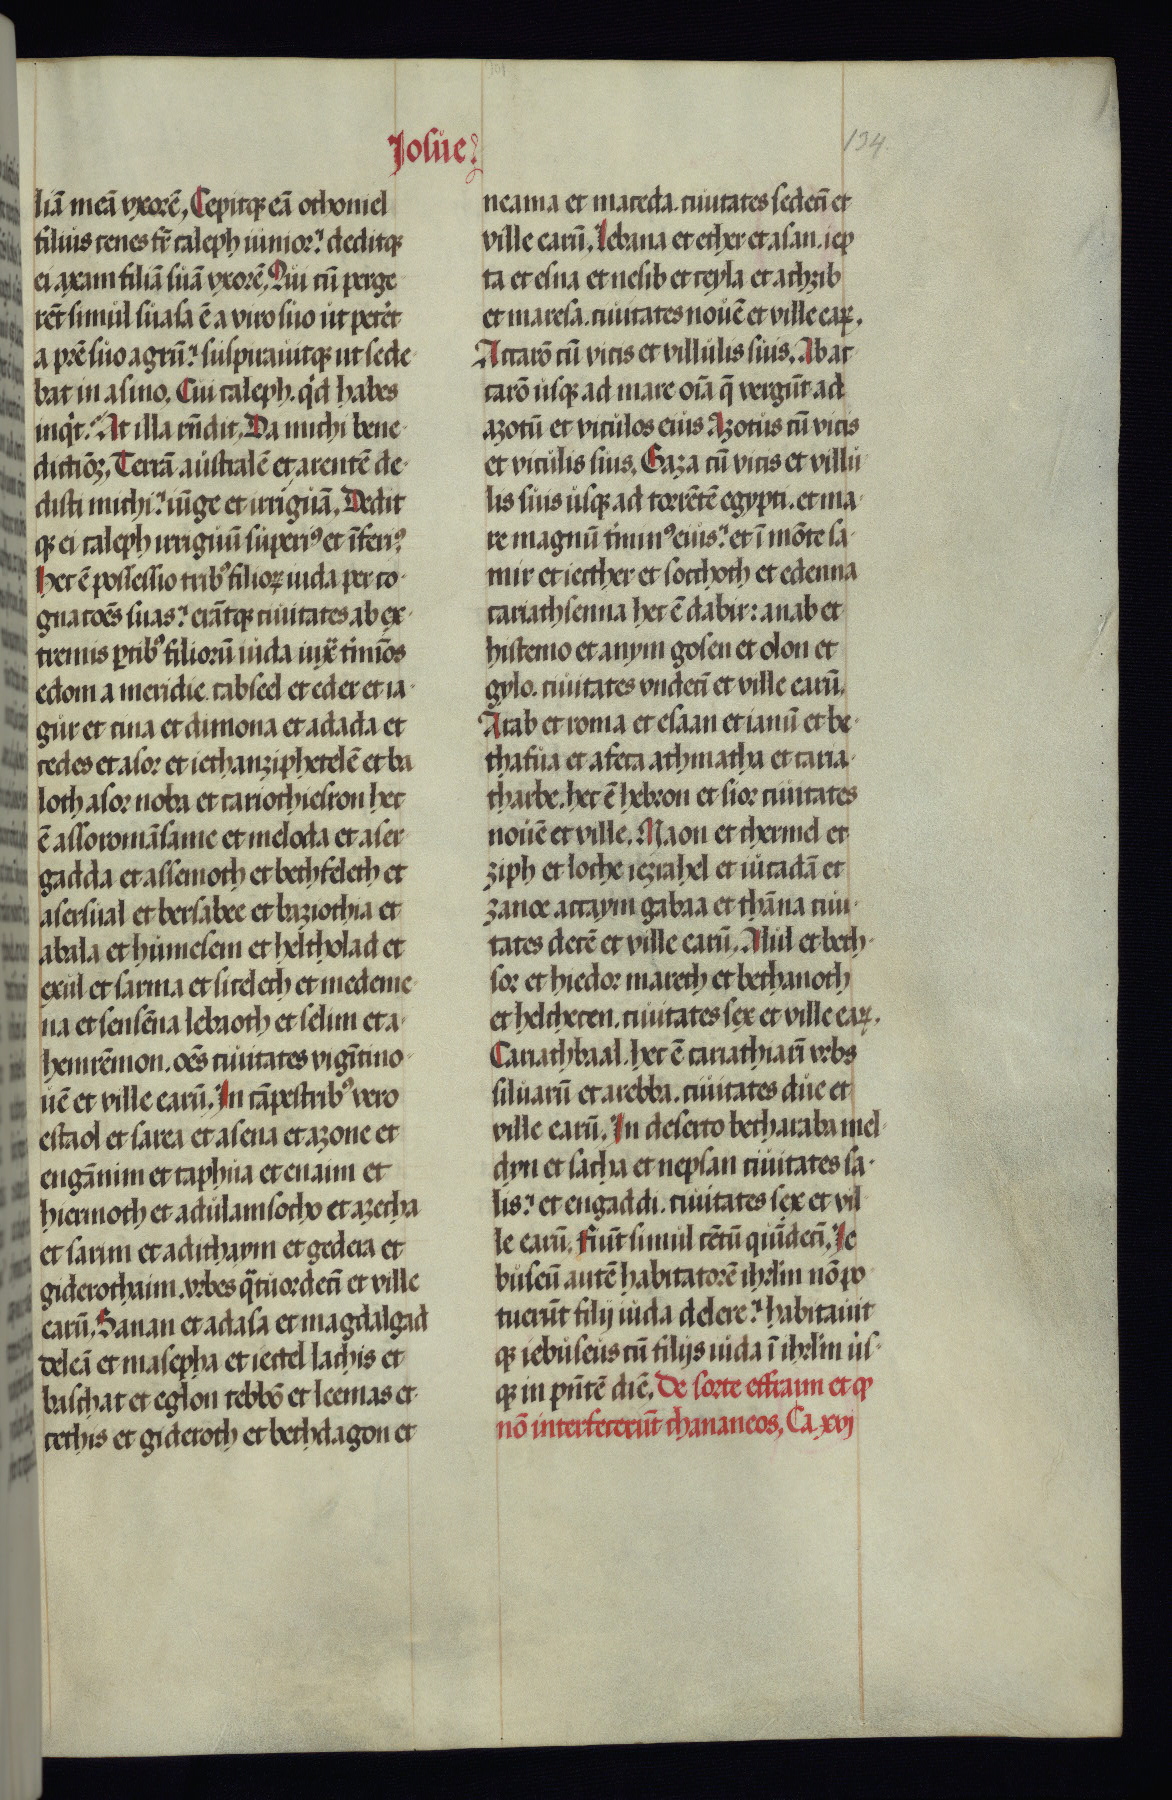 Josue
134.
liā meā vxorē, Cepitqꝫ eā othoniel
filius cenes fr̄ caleph iunior? deditqꝫ
ei axam filiā suā vxorē, Qui cū perge
rēt simul suasa ē a viro suo ut peter̄t
a prē suo agrū? suspirauitqꝫ ut sede-
bat in asino. Cui caleph. qͥd habes
inqͥt? At illa rn̄dit. Da michi bene-
dictiōꝫ, Terrā australē et arentē de-
disti michi? iūge et irriguā. Dedit
qꝫ ei caleph irriguū superiꝰ et īferiꝰ
Hec ē possessio tribꝰ filioꝝ iuda per co-
gnatōes suas? erātqꝫ ciuitates ab ex-
tremis ꝑtibꝰ filiorū iuda iux̄ t̄mīos
edom a meridie. cabseel et eder et ia-
gur et cina et dimona et adada et
cedes et asor et iethanziphetelē et ba
loth asor noba et cariothiesron hec
ē assoromāsame et meloda et aser
gadda et assemoth et bethfeleth et
asersual et bersabee et baziothia et
abala et humesem et heltholad et
exul et sarma et siteleth et medeme-
na et sensēna lebaoth et selim et a-
henrēmon. oēs ciuitates vigīti no-
uē et ville earū. In cāpestribꝰ vero
estaol et sarea et asena et azone et
engānim et taphua et enaim et
hiermoth et adulam socho et azecha
et sarim et adithaym et gedera et
giderothaim. vrbes qͣtuordecī et ville
earū. Sanan et adasa et magdalgad
deleā et masepha et iectel lachis et
baschat et eglon tebbō et leemas et
cethis et gideroth et bethdagon et
neama et maceda. ciuitates sedecī et
ville earū. Lebana et ether et asan. iep
ta et esna et nesib et ceyla et achzib
et maresa. ciuitates nouē et ville eaꝝ.
Accarō cū vicis et villulis suis. Ab ac
carō usqꝫ ad mare oīa q̄ vergūt ad
azotū et viculos eius Azotus cū vicis
et viculis suis. Gaza cū vicis et villu
lis suis usqꝫ ad torrētē egypti. et ma-
re magnū t̄minꝰ eius? et ī mōte sa-
mir et iecther et socchoth et edenna
cariathsenna hec ē dabir: anab et
histemo et anym gosen et olon et
gylo. ciuitates vndecī et ville earū.
Arab et roma et esaan et ianū et be-
thafua et afeca athmatha et caria-
tharbe. hec ē hebron et sior ciuitates
nouē et ville. Maon et chermel et
ziph et lothe iezrahel et iucadā et
zanoe accaym gabaa et thāna ciui-
tates decē et ville earū. Alul et beth-
sor et hiedor mareth et bethanoth
et helthecen. ciuitates sex et ville eaꝝ.
Cariathbaal. hec ē cariathiarī vrbs
siluarū et arebba. ciuitates due et
ville earū. In deserto betharaba mel-
dyn et sacha et nepsan ciuitates sa-
lis? et engaddi. ciuitates sex et vil
le earū. Fiūt simul cētū quīdecī. Ie
buseū autē habitatorē ihrl̄m nō po
tuerūt filij iuda delere? habitauit
qꝫ iebuseus cū filijs iuda ī ihrl̄m us-
qꝫ in pn̄tē diē. De sorte effraim et qͥ
nō interfecerūt chananeos, Ca. xvj